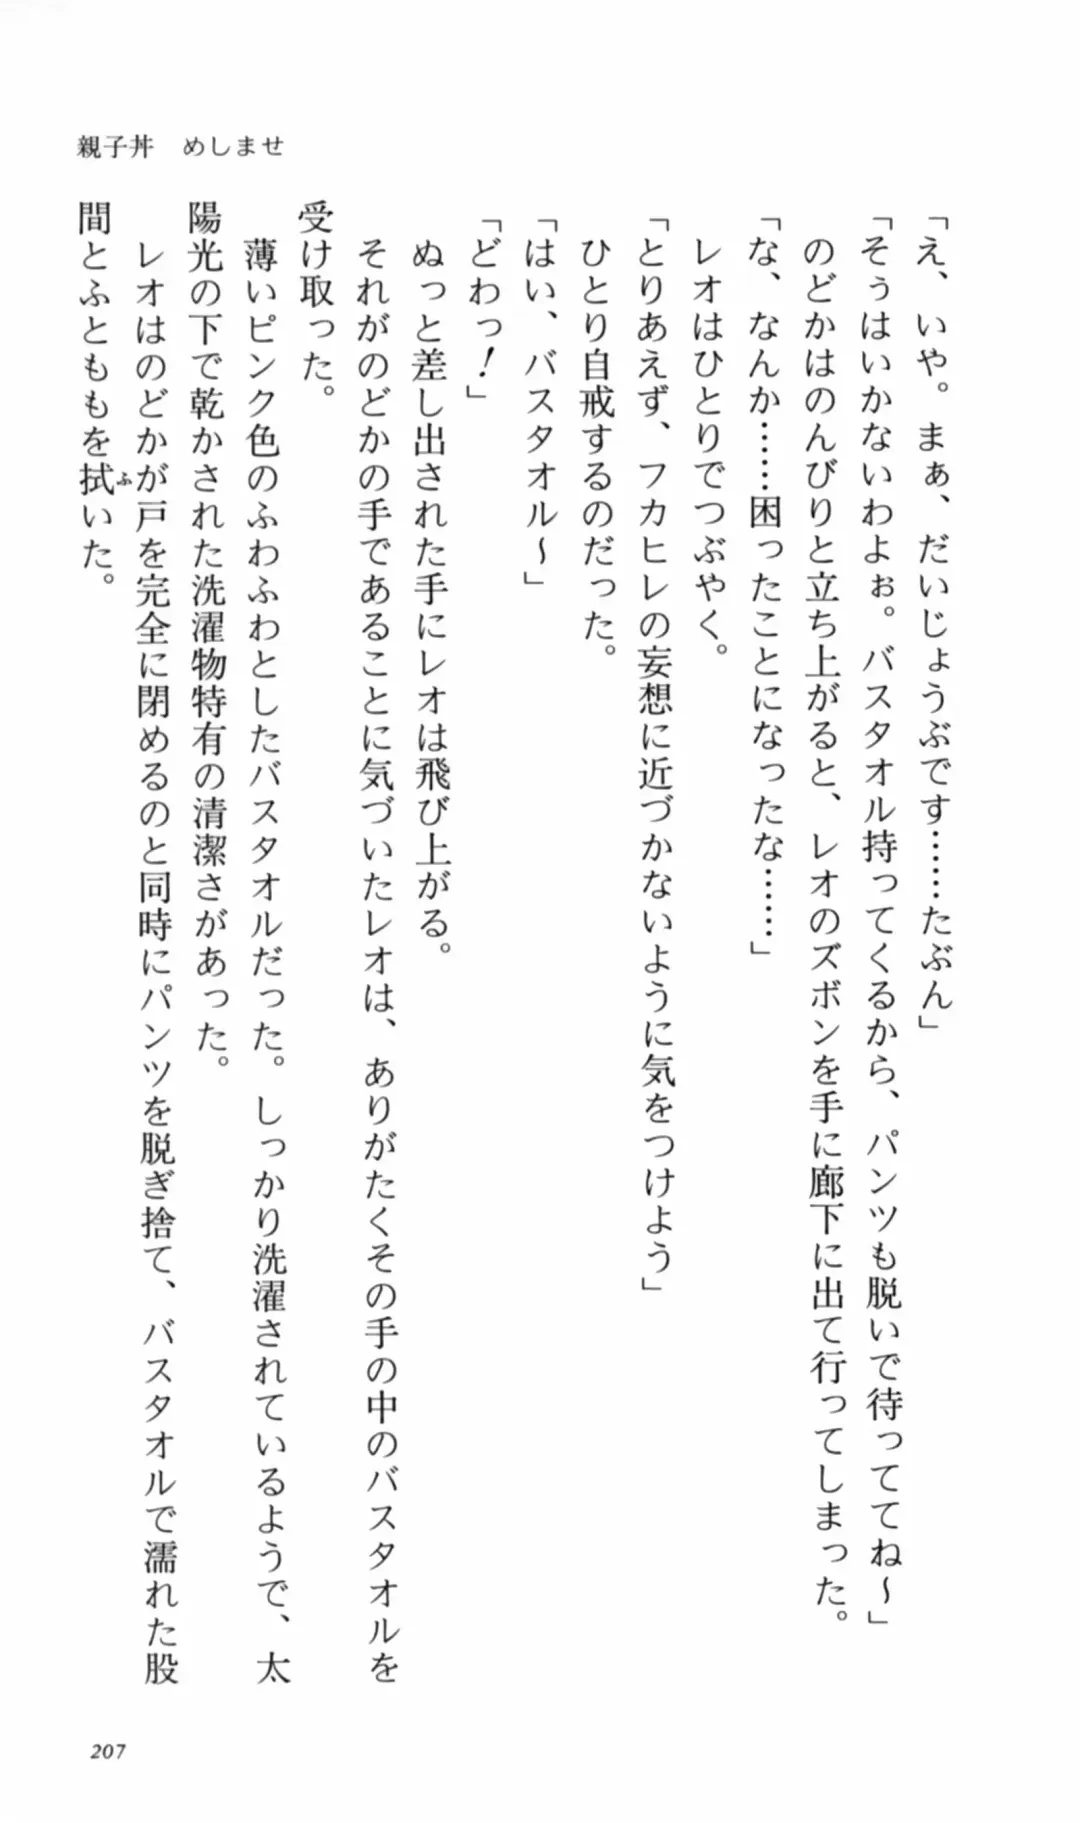 親子丼　めしませ
「え、いや。まぁ、だいじょうぶです……たぶん」
「そぅはいかないわよぉ。バスタオル持ってくるから、パンツも脱いで待っててね～」
のどかはのんびりと立ち上がると、レオのズボンを手に廊下に出て行ってしまった。
「な、なんか……困ったことになったな……」
レオはひとりでつぶやく。
「とりあえず、フカヒレの妄想に近づかないように気をつけよう」
ひとり自戒するのだった。
「はい、バスタオル～」
「どわっ！」
ぬっと差し出された手にレオは飛び上がる。
それがのどかの手であることに気づいたレオは、ありがたくその手の中のバスタオルを
受け取った。
薄いピンク色のふわふわとしたバスタオルだった。しっかり洗濯されているようで、太
陽光の下で乾かされた洗濯物特有の清潔さがあった。
レオはのどかが戸を完全に閉めるのと同時にパンツを脱ぎ捨て、バスタオルで濡れた股
間とふとももを拭ふいた。
207